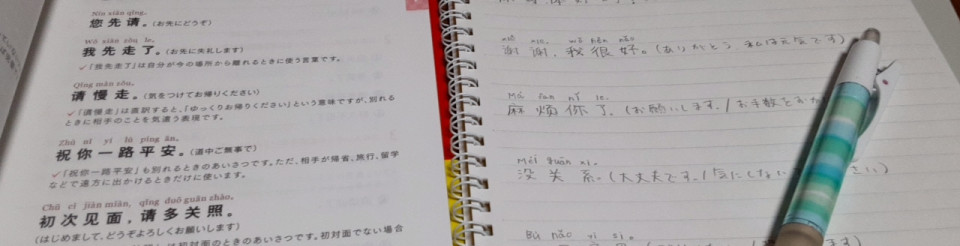 Nín xiān qǐng.
您先请。(お先にどうぞ)
Wǒ xiān zǒu le.
我先走了。(お先に失礼します)
✓「我先走了」は自分が今の場所から離れるときに使う言葉です。
Qǐng màn zǒu.
请慢走。(気をつけてお帰りください)
✓「请慢走」は直訳すると、「ゆっくりお帰りください」という意味ですが、別れる
ときに相手のことを気遣う表現です。
Zhù nǐ yí lù píng ān.
祝你一路平安。(道中ご無事で)
✓「祝你一路平安」も別れるときのあいさつです。ただ、相手が帰省、旅行、留学
などで遠方に出かけるときだけに使います。
Chū cì jiàn miàn, qǐng duō guān zhào.
初次见面,请多关照。
(はじめまして、どうぞよろしくお願いします)
初対面のときのあいさつです。初対面でない場合
xiè xie, wǒ hěn hǎo
谢谢、我很好。(ありがとう、私は元気です)
Má fan nǐ le.
麻烦你了。(お願いします。/お手数をおか
Méi guān xi.
没关系。(大丈夫です。/気にしない
さい)
Bù hǎo yì si.
ます)